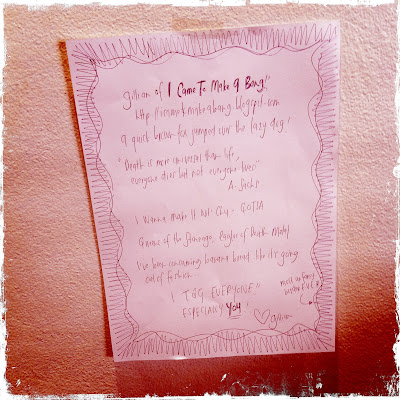 gillian of I Came To Make A Bang!"
http://icametomakeabang.blogspot.com
A quick brown fox jumped over the lazy dog!
"Death is more universal than life;
everyone dies but not everyone lives."
A. Sachs
I Wanna Make It Not Cry - GOTSA
Queens of the Stoneage, Eagles of Death Metal
I've been consuming banana bread like it's going
out of fashion.
I TAG EVERYONE"
ESPECIALLY YOU
gillian